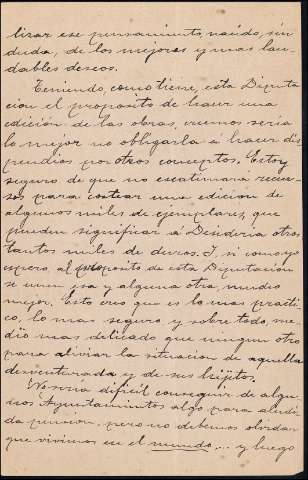 lizar ese pensamiento, nacido, sin
duda, de los mejores y mas lau-
dables deseos.
Teniendo, como tiene, esta Diputa-
cion el proposito de hacer una
edición de las obras, creemos seria
lo mejor no obligarla á hacer dis-
pendios por otros conceptos. Estoy
seguro de que no escatimará recur-
sos para costear una edicion de
algunos miles de ejemplares, que
pueden significar á Desideria otros
tantos miles de duros. Y, si como yo
espero, al proposito de esta Diputacion
se unen esa y alguna otra, mucho
mejor. Esto creo que es lo mas practi-
co, lo mas seguro y sobre todo, me-
dio mas delicado que ningun otro
para aliviar la situacion de aquella
desventurada y de sus hijitos.
No seria dificil conseguir de algu-
nos Ayuntamientos algo para aludi-
da pension, pero no debemos olvidar
que vivimos en el mundo... y luego